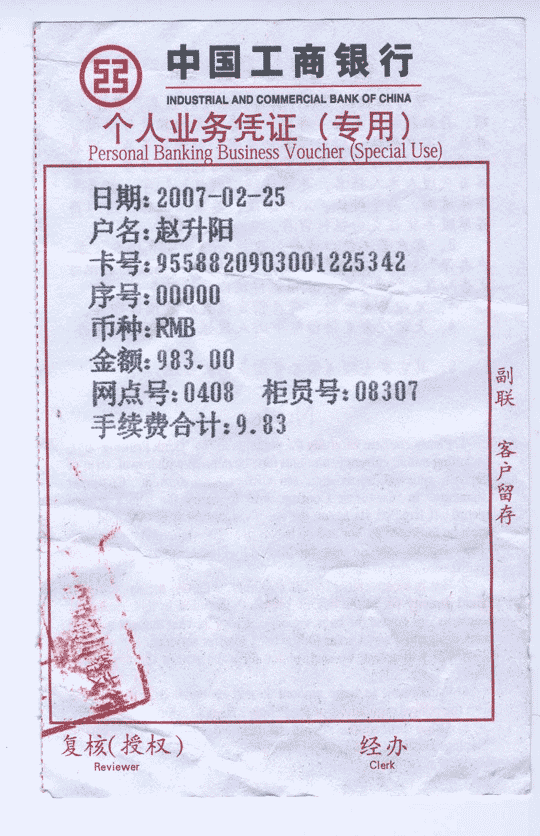 中国工商银行
INDUSTRIAL AND COMMERCIAL BANK OF CHINA
个人业务凭证（专用）
Personal Banking Business Voucher (Special Use)
日期:2007-02-25
户名:赵升阳
卡号:9558820903001225342
序号:00000
币种:RMB
金额:983.00
网点号:0408 柜员号:08307
手续费合计:9.83
副联 客户留存
复核(授权)
Reviewer
经办
Clerk